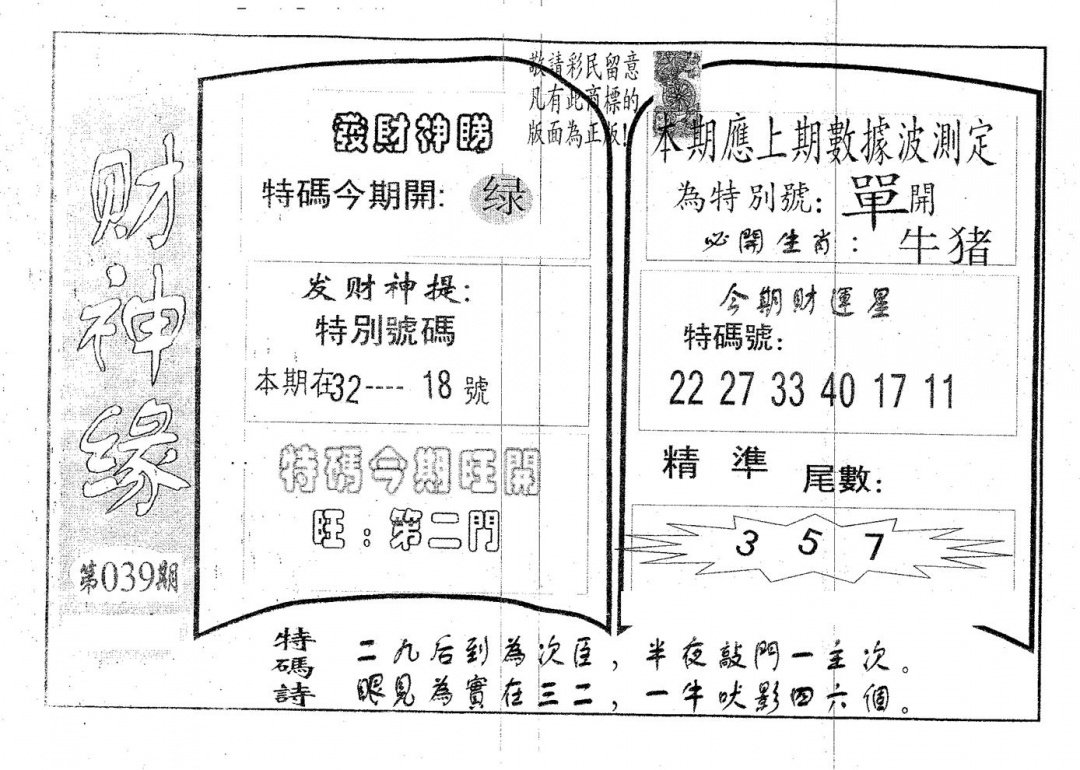 财神缘
第039期
敬請彩民留意
凡有此商標的
版面為正版!
發財神睇
特碼今期開: 绿
发财神提:
特別號碼
本期在32---- 18 號
特碼今期旺開
旺:第二門
本期應上期數據波測定
為特別號: 單開
必開生肖: 牛猪
今期財運星
特碼號:
22 27 33 40 17 11
精準 尾數:
3 5 7
特碼詩
二九后到為次臣,半夜敲門一主次。
眼見為實在三二,一牛吠影四六個。